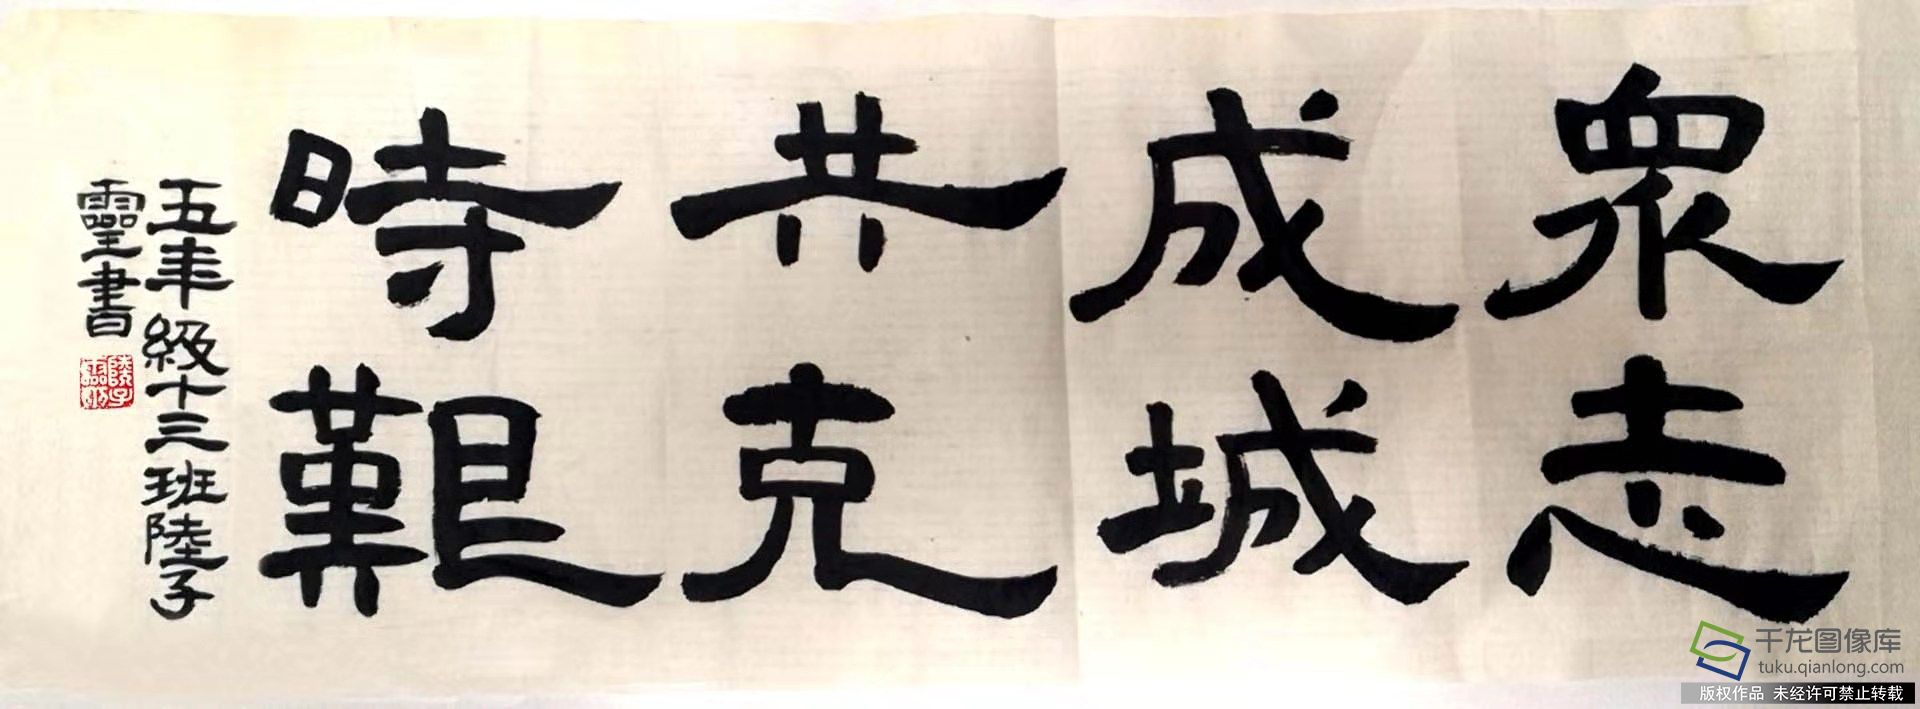 眾志
成城
共克
時艱
五年級十三班陸子
靈書
千龙图像库
tuku.qianlong.com
版权作品 未经许可禁止转载